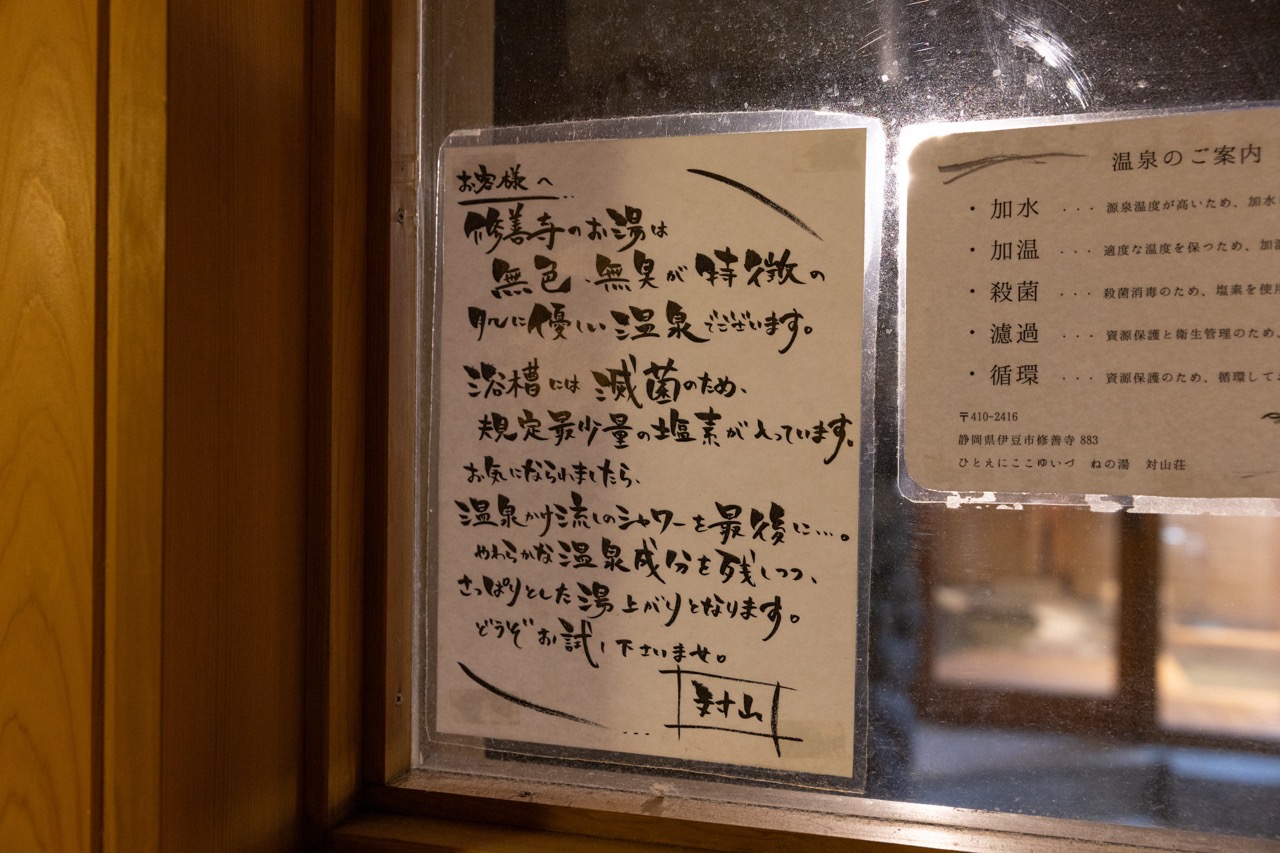 お客様へ
修善寺のお湯は
無色、無臭が特徴の
肌に優しい温泉でございます。
浴槽には滅菌のため、
規定最少量の塩素が入っています。
お気になられましたら、
温泉かけ流しのシャワーを最後に…。
やわらかな温泉成分を残しつつ、
さっぱりとした湯上がりとなります。
どうぞお試し下さいませ。
対山
温泉のご案内
・加水 ... 源泉温度が高いため、加水
・加温 ... 適度な温度を保つため、加温
・殺菌 ... 殺菌消毒のため、塩素を使用
・濾過 ... 資源保護と衛生管理のため、
・循環 ... 資源保護のため、循環して
〒410-2416
静岡県伊豆市修善寺 883
ひとえにここゆいづ ねの湯 対山荘